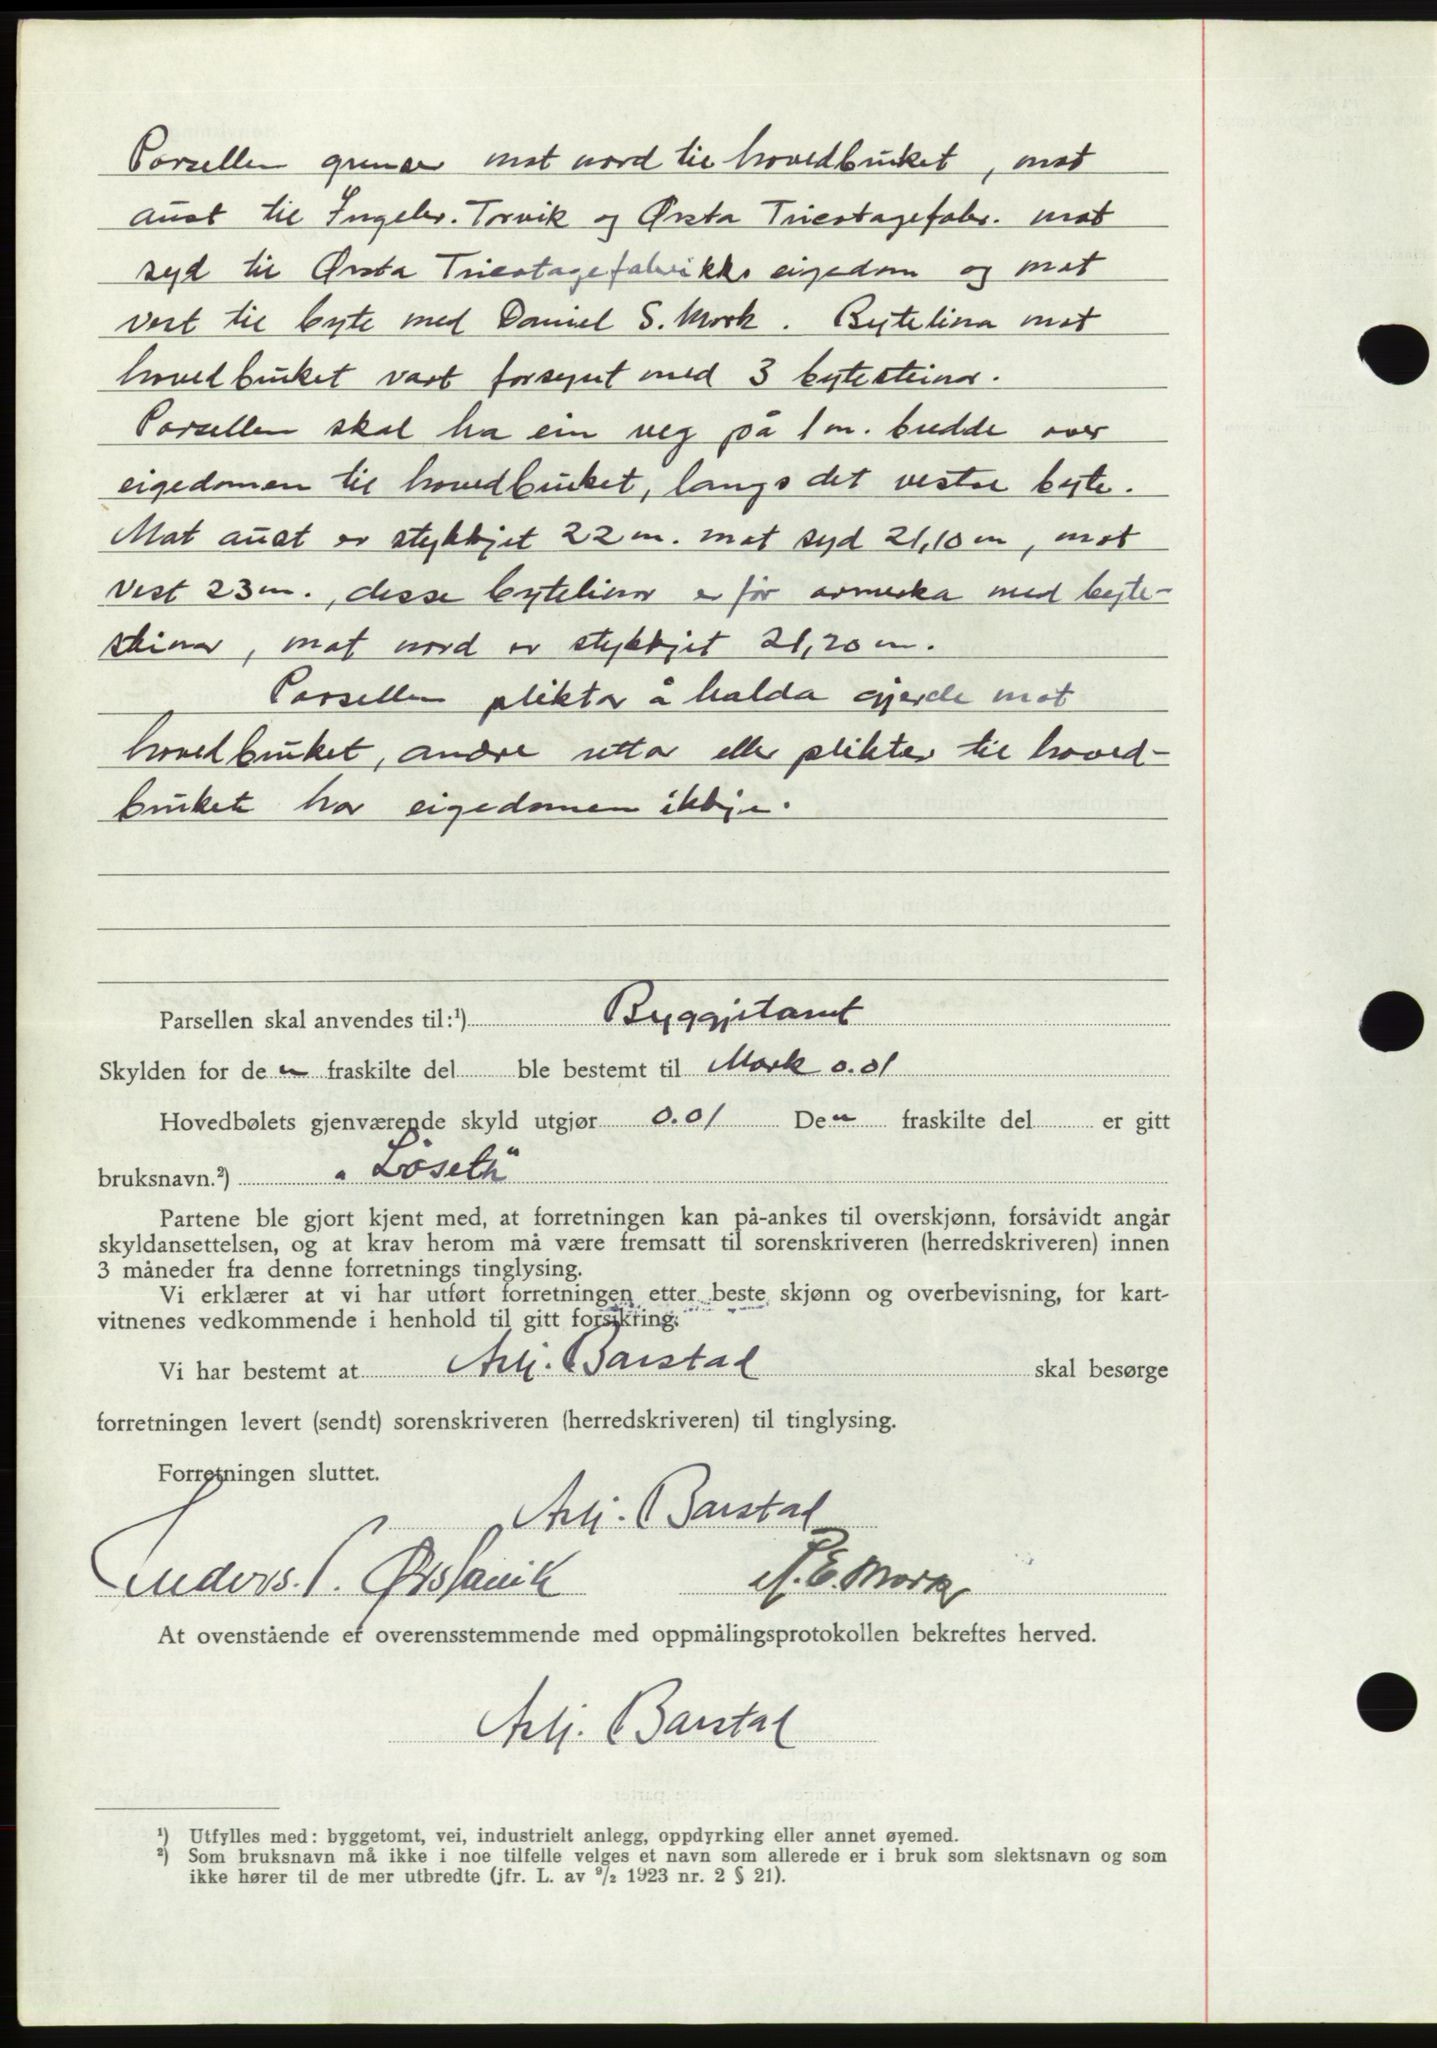 Parsellen grensar mot nord til hovedbruket, mot
aust til Ingebr. Torvik og Ørsta Tricotagefabr. mot
syd til Ørsta Tricotagefabrikks eigedom og mot
vest til byte med Daniel S. Mork. Bytelina mot
hovedbruket vart forsynt med 3 bytesteinar.
Parsellen skal ha ein veg på 1 m. bredde over
eigedomen til hovedbruket, langs det vestre byte.
Mot aust er stykkjet 22 m. mot syd 21,10 m, mot
vest 23 m., desse bytelinor er før avmerka med byte-
steinar, mot nord er stykkjet 21,20 m.
Parsellen pliktar å halda gjerde mot
hovedbruket, andre rettar eller plikter til hoved-
bruket har eigedomen ikkje.
Parsellen skal anvendes til:¹) Byggjetomt
Skylden for de n fraskilte del ble bestemt til Mark 0.01
Hovedbølets gjenværende skyld utgjør 0.01 De n fraskilte del er gitt
bruksnavn.²) „Løseth"
Partene ble gjort kjent med, at forretningen kan på-ankes til overskjønn, forsåvidt angår
skyldansettelsen, og at krav herom må være fremsatt til sorenskriveren (herredskriveren) innen
3 måneder fra denne forretnings tinglysing.
Vi erklærer at vi har utført forretningen etter beste skjønn og overbevisning, for kart-
vitnenes vedkommende i henhold til gitt forsikring.
Vi har bestemt at Asbj. Barstad skal besørge
forretningen levert (sendt) sorenskriveren (herredskriveren) til tinglysing.
Forretningen sluttet.
Asbj. Barstad
Anders. P. Ørstavik P. E. Mork
At ovenstående er overensstemmende med oppmålingsprotokollen bekreftes herved.
Asbj. Barstad
¹) Utfylles med: byggetomt, vei, industrielt anlegg, oppdyrking eller annet øyemed.
²) Som bruksnavn må ikke i noe tilfelle velges et navn som allerede er i bruk som slektsnavn og som
ikke hører til de mer utbredte (jfr. L. av ⁹/₂ 1923 nr. 2 § 21).